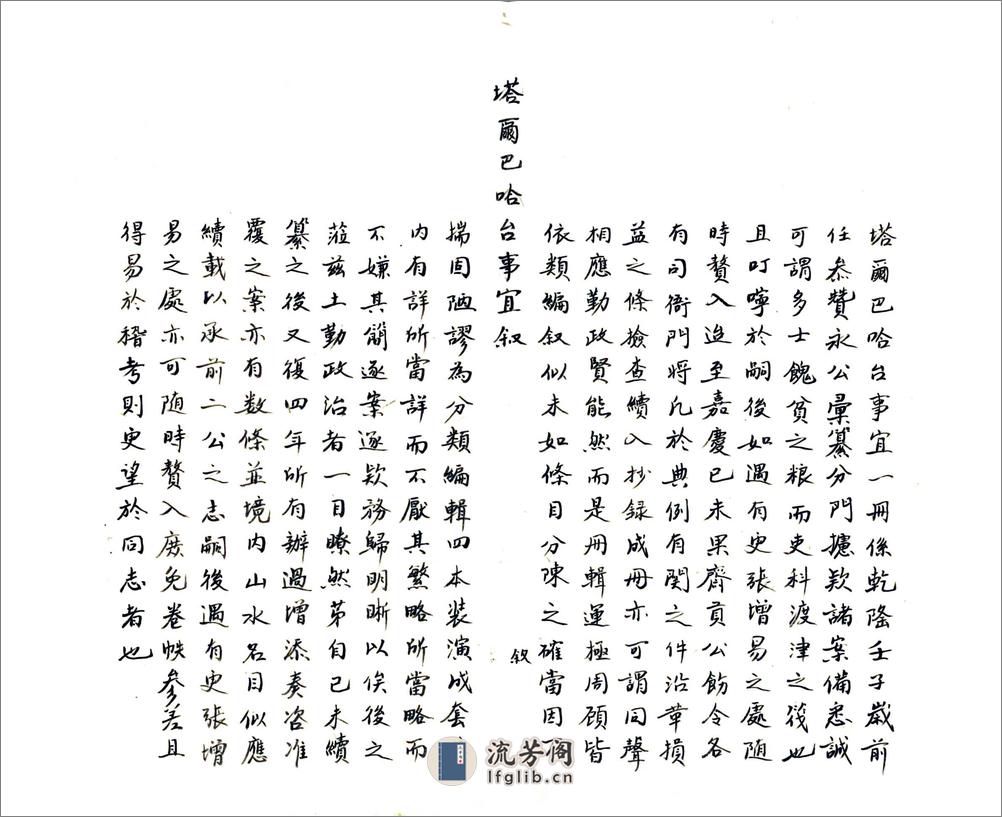 塔爾巴哈台事宜叙
塔爾巴哈台事宜一冊係乾隆壬子歲前
任叅贊永公彙纂分門攄欵諸案備悉誠
可謂多士餽貧之粮而吏科渡津之筏也
且叮嚀於嗣後如遇有更張增易之處随
時贅入迨至嘉慶已未果齊貢公飭令各
有司衙門将凡於典例有関之件沿革損
益之條撿查續入抄録成冊亦可謂同聲
相應勤政賢能然而是冊輯運極周顾皆
依類編叙似未如條目分陳之確當因不
叙
揣固陋謬為分類編輯四本装演成套
内有詳所當詳而不厭其繁略所當略而
不嫌其簡逐案逐欵務歸明晰以俟後之
蒞兹土勤政治者一目瞭然苐自已未續
纂之後又復四年所有辦過增添奏咨准
覆之案亦有数條並境内山水名目似應
續載以承前二公之志嗣後遇有更張增
易之處亦可随時贅入庶免卷帙参差且
得易於稽考則更望於同志者也
流芳阁
lfglib.cn